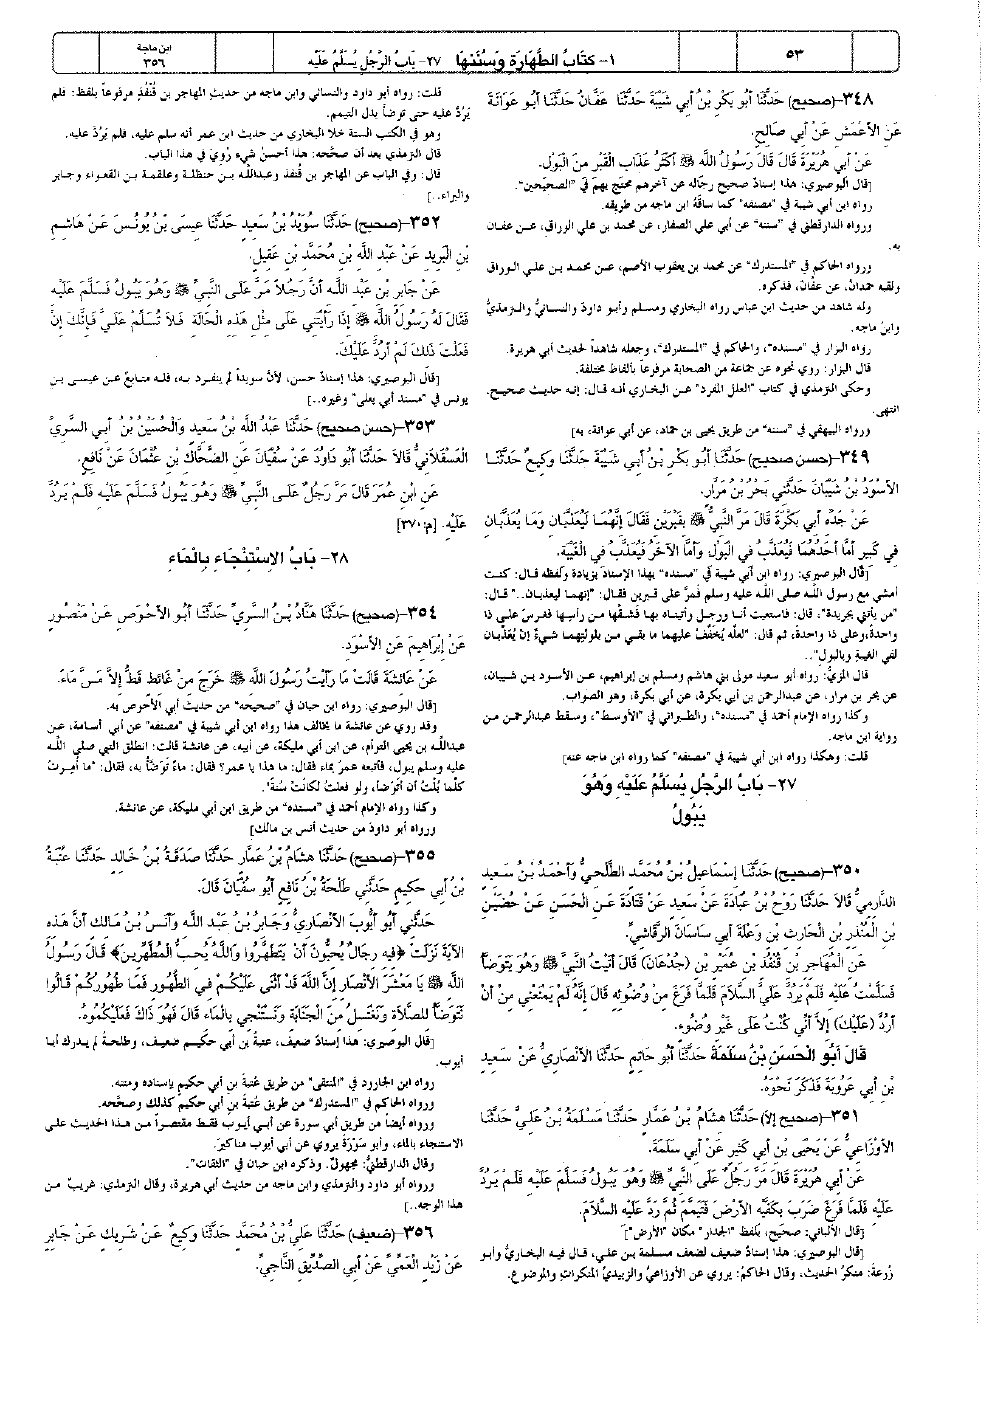 ٥٣
١- كتَابُ الطَّهَارَة وَسُنَنْهَا
٢٧- بَابُ الرَّجُلِ يُسَلَّمُ عَلَيْه
ابن ماجة
٣٥٦
٣٤٨-(صحيح) حَدَّثَنَا أَبُو بَكْرِ بْنُ أَبِي شَيْبَةَ حَدَّثَنَا عَفَّانُ حَدَّثَنَا أَبُو عَوَانَةَ
عَنِ الأَعْمَشِ عَنْ أَبِي صَالِحٍ.
عَنْ أَبِي هُرَيْرَةَ قَالَ قَالَ رَسُولُ اللَّه ﷺ أَكْثَرُ عَذَابِ الْقَبْرِ مِنَ الْبَوْلِ.
[قال البوصيري: هذا إسنادٌ صحيح رجاله عن آخرهم محتج بهم في "الصحيحين".
رواه ابن أبي شيبة في "مصنفه" كما ساقهُ ابن ماجه من طريقه.
ورواه الدارقطني في "سننه" عن أبي علي الصفار، عن محمد بن علي الوراق، عن عفان
به.
ورواه الحاكم في "المستدرك" عن محمد بن يعقوب الأصم، عن محمد بن علي الوراق
ولقبه حمدانُ، عن عفّانَ، فذكره.
وله شاهد من حديث ابن عباس رواه البخاري ومسلم وأبو داودَ والنسائيُّ والترمذيُّ
وابنُ ماجه.
رواه البزار في "مسنده"، والحاكم في "المستدرك"، وجعله شاهداً لحديث أبي هريرة.
قال البزار: روي نحوه عن جماعة من الصحابة مرفوعاً بألفاظ مختلفة.
وحكى الترمذي في كتاب "العلل المفرد" عن البخاري أنه قال: إنه حديث صحيح.
انتهى.
ورواه البيهقي في "سننه" من طريق يحيى بن حماد، عن أبي عوانة، به]
٣٤٩-(حسن صحيح) حَدَّثَنَا أَبُو بَكْرِ بْنُ أَبِي شَيْبَةَ حَدَّثَنَا وَكِيعٌ حَدَّثَنَا
الأَسْوَدُ بْنُ شَيْبَانَ حَدَّثَنِي بَحْرُ بْنُ مَرَّارٍ.
عَنْ جَدِّه أَبِي بَكْرَةَ قَالَ مَرَّ النَّبِيُّ ﷺ بِقَبْرَيْنِ فَقَالَ إِنَّهُمَا لَيُعَذَّبَانِ وَمَا يُعَذَّبَانِ
فِي كَبِيرٍ أَمَّا أَحَدُهُمَا فَيُعَذَّبُ فِي الْبَوْلِ وَأَمَّا الآخَرُ فَيُعَذَّبُ فِي الْغَيْبَةِ.
[قال البوصيري: رواه ابن أبي شيبة في "مسنده" بهذا الإسناد بزيادة ولفظه قال: كنت
أمشي مع رسول الله صلى الله عليه وسلم فمرَّ على قبرين فقال: "إنهما ليعذبان.." قال:
"من يأتني بجريدة"، قال: فاستبقت أنا ورجل وأتيناه بها فَشقّها من رأسِها فغرسَ على ذا
واحدةً، وعلى ذا واحدة، ثم قال: "لعلّه يُخَفَّفُ عليهما ما بقي من بلولتهما شيءٌ إنْ يُعَذَّبان
لفي الغيبة وبالبول"..
قال المزيُّ: رواه أبو سعيد مولى بني هاشم ومسلم بن إبراهيم، عن الأسود بن شيبان،
عن بحر بن مرار، عن عبدالرحمن بن أبي بكرة، عن أبي بكرة، وهو الصواب.
وكذا رواه الإمام أحمد في "مسنده"، والطبراني في "الأوسط"، وسقط عبدالرحمن من
رواية ابن ماجه.
قلت: وهكذا رواه ابن أبي شيبة في "مصنفه" كما رواه ابن ماجه عنه]
٢٧- بَابُ الرَّجُلِ يُسَلَّمُ عَلَيْه وَهُوَ
يَبُولُ
٣٥٠-(صحيح) حَدَّثَنَا إِسْمَاعِيلُ بْنُ مُحَمَّدِ الطَّلْحِيُّ وَأَحْمَدُ بْنُ سَعِيدٍ
الدَّارِمِيُّ قَالاَ حَدَّثَنَا رَوْحُ بْنُ عُبَادَةَ عَنْ سَعِيدٍ عَنْ قَتَادَةَ عَنِ الْحَسَنِ عَنْ حُضَيْنِ
بْنِ الْمُنْذِرِ بْنِ الْحَارِثِ بْنِ وَعْلَةَ أَبِي سَاسَانَ الرَّقَاشِيِّ.
عَنِ الْمُهَاجِرِ بْنِ قُنْفُذِ بْنِ عُمَيْرِ بْنِ (جُدْعَانَ) قَالَ أَتَيْتُ النَّبِيَّ ﷺ وَهُوَ يَتَوَضَّأُ
فَسَلَّمْتُ عَلَيْه فَلَمْ يَرُدَّ عَلَيَّ السَّلاَمَ فَلَمَّا فَرَغَ مِنْ وُضُوئِه قَالَ إِنَّهُ لَمْ يَمْنَعْنِي مِنْ أَنْ
أَرُدَّ (عَلَيْكَ) إِلاَّ أَنِّي كُنْتُ عَلَى غَيْرِ وُضُوءٍ.
قَالَ أَبُو الْحَسَنِ بْنُ سَلَمَةَ حَدَّثَنَا أَبُو حَاتِمٍ حَدَّثَنَا الأَنْصَارِيُّ عَنْ سَعِيدِ
بْنِ أَبِي عَرُوبَةَ فَذَكَرَ نَحْوَهُ.
٣٥١-(صحيح إلا) حَدَّثَنَا هِشَامُ بْنُ عَمَّارٍ حَدَّثَنَا مَسْلَمَةُ بْنُ عَلِيٍّ حَدَّثَنَا
الأَوْزَاعِيُّ عَنْ يَحْيَى بْنِ أَبِي كَثِيرٍ عَنْ أَبِي سَلَمَةَ.
عَنْ أَبِي هُرَيْرَةَ قَالَ مَرَّ رَجُلٌ عَلَى النَّبِيِّ ﷺ وَهُوَ يَبُولُ فَسَلَّمَ عَلَيْه فَلَمْ يَرُدَّ
عَلَيْه فَلَمَّا فَرَغَ ضَرَبَ بِكَفَّيْه الأَرْضَ فَتَيَمَّمَ ثُمَّ رَدَّ عَلَيْه السَّلاَمَ.
[قال الألباني: صحيح، بلفظ "الجدار" مكان "الأرض"]
[قال البوصيري: هذا إسنادٌ ضعيف لضعف مسلمة بن علي، قال فيه البخاريُّ وأبو
زُرعةَ: منكرُ الحديث، وقال الحاكمُ: يروي عن الأوزاعيِّ والزبيديِّ المنكرات والموضوع.
قلت: رواه أبو داود والنسائي وابن ماجه من حديث المهاجر بن قُنْفُذ مرفوعاً بلفظ: فلم
يَرُدَّ عليه حتى توضأ بدل التيمم.
وهو في الكتب الستة خلا البخاري من حديث ابن عمر أنه سلم عليه، فلم يَرُدَّ عليه.
قال الترمذي بعد أن صحَّحه: هذا أحسنُ شيء رُوِيَ في هذا الباب.
قال: وفي الباب عن المهاجر بن قنفذ وعبدالله بن حنظلة وعلقمة بن الفغواء وجابر
والبراء..]
٣٥٢-(صحيح) حَدَّثَنَا سُوَيْدُ بْنُ سَعِيدٍ حَدَّثَنَا عِيسَى بْنُ يُونُسَ عَنْ هَاشِمِ
بْنِ الْبَرِيدِ عَنْ عَبْدِ اللَّه بْنِ مُحَمَّدِ بْنِ عَقِيلٍ.
عَنْ جَابِرِ بْنِ عَبْدِ اللَّه أَنَّ رَجُلاً مَرَّ عَلَى النَّبِيِّ ﷺ وَهُوَ يَبُولُ فَسَلَّمَ عَلَيْه
فَقَالَ لَهُ رَسُولُ اللَّه ﷺ إِذَا رَأَيْتَنِي عَلَى مِثْلِ هَذِه الْحَالَةِ فَلاَ تُسَلِّمْ عَلَيَّ فَإِنَّكَ إِنْ
فَعَلْتَ ذَلِكَ لَمْ أَرُدَّ عَلَيْكَ.
[قال البوصيري: هذا إسنادٌ حسن، لأنَّ سويداً لم ينفرد به، فله متابعٌ عن عيسى بن
يونس في "مسند أبي يعلى" وغيره..]
٣٥٣-(حسن صحيح) حَدَّثَنَا عَبْدُ اللَّه بْنُ سَعِيدٍ وَالْحُسَيْنُ بْنُ أَبِي السَّرِيِّ
الْعَسْقَلاَنِيُّ قَالاَ حَدَّثَنَا أَبُو دَاوُدَ عَنْ سُفْيَانَ عَنِ الضَّحَّاكِ بْنِ عُثْمَانَ عَنْ نَافِعٍ.
عَنِ ابْنِ عُمَرَ قَالَ مَرَّ رَجُلٌ عَلَى النَّبِيِّ ﷺ وَهُوَ يَبُولُ فَسَلَّمَ عَلَيْه فَلَمْ يَرُدَّ
عَلَيْه. [م: ٣٧٠]
٢٨- بَابُ الاِسْتِنْجَاءِ بِالْمَاءِ
٣٥٤-(صحيح) حَدَّثَنَا هَنَّادُ بْنُ السَّرِيِّ حَدَّثَنَا أَبُو الأَحْوَصِ عَنْ مَنْصُورٍ
عَنْ إِبْرَاهِيمَ عَنِ الأَسْوَدِ.
عَنْ عَائِشَةَ قَالَتْ مَا رَأَيْتُ رَسُولَ اللَّه ﷺ خَرَجَ مِنْ غَائِطٍ قَطُّ إِلاَّ مَسَّ مَاءً.
[قال البوصيري: رواه ابن حبان في "صحيحه" من حديث أبي الأحوص به.
وقد روي عن عائشة ما يخالف هذا رواه ابن أبي شيبة في "مصنفه" عن أبي أسامة، عن
عبدالله بن يحيى التوأم، عن ابن أبي مليكة، عن أبيه، عن عائشة قالت: انطلق النبي صلى الله
عليه وسلم يبول، فأتبعه عمرُ بماء فقال: ما هذا يا عمر؟ فقال: ماءٌ تَوَضّأ به، فقال: "ما أُمِرتُ
كلّما بُلْتُ أن أتوَضأ، ولو فعلتُ لكانتْ سُنةً".
وكذا رواه الإمام أحمد في "مسنده" من طريق ابن أبي مليكة، عن عائشة.
ورواه أبو داودَ من حديث أنس بن مالك]
٣٥٥-(صحيح) حَدَّثَنَا هِشَامُ بْنُ عَمَّارٍ حَدَّثَنَا صَدَقَةُ بْنُ خَالِدٍ حَدَّثَنَا عُتْبَةُ
بْنُ أَبِي حَكِيمٍ حَدَّثَنِي طَلْحَةُ بْنُ نَافِعٍ أَبُو سُفْيَانَ قَالَ.
حَدَّثَنِي أَبُو أَيُّوبَ الأَنْصَارِيُّ وَجَابِرُ بْنُ عَبْدِ اللَّه وَأَنَسُ بْنُ مَالِكٍ أَنَّ هَذِه
الآيَةَ نَزَلَتْ ﴿فِيه رِجَالٌ يُحِبُّونَ أَنْ يَتَطَهَّرُوا وَاللَّهُ يُحِبُّ الْمُطَّهِّرِينَ﴾ قَالَ رَسُولُ
اللَّه ﷺ يَا مَعْشَرَ الأَنْصَارِ إِنَّ اللَّهَ قَدْ أَثْنَى عَلَيْكُمْ فِي الطُّهُورِ فَمَا طُهُورُكُمْ قَالُوا
نَتَوَضَّأُ لِلصَّلاَةِ وَنَغْتَسِلُ مِنَ الْجَنَابَةِ وَنَسْتَنْجِي بِالْمَاءِ قَالَ فَهُوَ ذَاكَ فَعَلَيْكُمُوهُ.
[قال البوصيري: هذا إسنادٌ ضعيف، عتبةُ بن أبي حكيم ضعيف، وطلحةُ لم يدرك أبا
أيوب.
رواه ابن الجارود في "المنتقى" من طريق عُتبةَ بنِ أبي حكيمٍ بإسناده ومتنه.
ورواه الحاكم في "المستدرك" من طريق عُتبةَ بنِ أبي حكيمٍ كذلك وصحَّحه.
ورواه أيضاً من طريق أبي سورة عن أبي أيوب فقط مقتصراً من هذا الحديث على
الاستنجاء بالماء، وأبو سَوْرَةَ يروي عن أبي أيوبَ مناكيرَ.
وقال الدارقطنيُّ: مجهولٌ. وذكره ابن حبان في "الثقات".
ورواه أبو داود والترمذي وابن ماجه من حديث أبي هريرة، وقال الترمذي: غريبٌ من
هذا الوجه..]
٣٥٦-(ضعيف) حَدَّثَنَا عَلِيُّ بْنُ مُحَمَّدٍ حَدَّثَنَا وَكِيعٌ عَنْ شَرِيكٍ عَنْ جَابِرٍ
عَنْ زَيْدٍ الْعَمِّيِّ عَنْ أَبِي الصِّدِّيقِ النَّاجِيِّ.